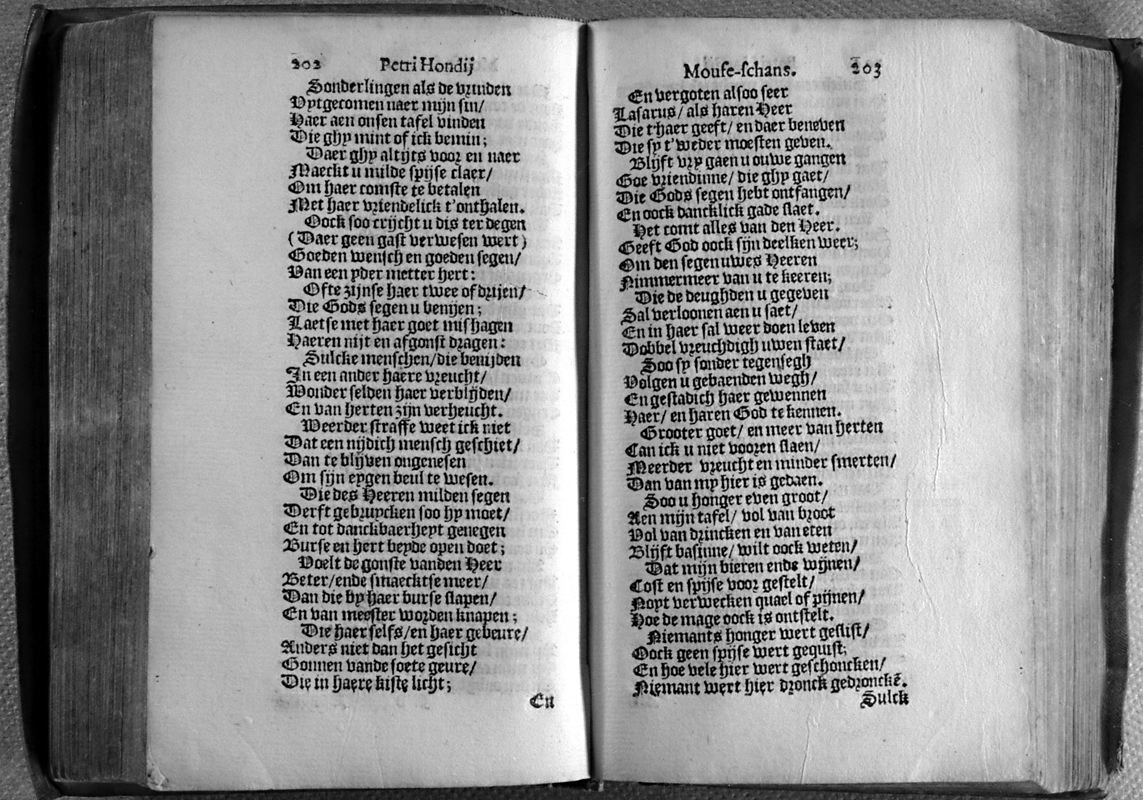 202 Petri Hondij
Sonderlingen als de vrinden
Vytgecomen naer mijn sin/
Haer aen onsen tafel vinden
Die ghy mint of ick bemin;
Daer ghy altijts voor en naer
Maeckt u milde spijse claer/
Om haer comste te betalen
Met haer vriendelick t'onthalen.
Oock soo crijcht u dis ter degen
(Daer geen gast verwesen wert)
Goeden wensch en goeden segen/
Van een yder metter hert:
Ofte zijnse haer twee of drijen/
Die Gods segen u benijen;
Laetse met haer goet mishagen
Haeren nijt en afgonst dragen:
Sulcke menschen/die benijden
In een ander haere vreucht/
Wonder selden haer verblijden/
En van herten zijn verheucht.
Weerder straffe weet ick niet
Dat een nijdich mensch geschiet/
Dan te blijven ongenesen
Om sijn eygen beul te wesen.
Die des Heeren milden segen
Derft gebruycken soo hy moet/
En tot danckbaerheyt genegen
Burse en hert beyde open doet;
Voelt de gonste vanden Heer
Beter/ende smaecktse meer/
Dan die by haer burse slapen/
En van meester worden knapen;
Die haer selfs/en haer gebeure/
Anders niet dan het gesicht
Gonnen vande soete geure/
Die in haere kiste licht;
En
Mouse-schans. 203
En vergoten alsoo seer
Lasarus/ als haren Heer
Die t'haer geeft/ en daer beneven
Die sy t'weder moesten geven.
Blijft vry gaen u ouwe gangen
Goe vriendinne/ die ghy gaet/
Die Gods segen hebt ontfangen/
En oock dancklick gade slaet.
Het comt alles van den Heer.
Geeft God oock sijn deelken weer;
Om den segen uwes Heeren
Nimmermeer van u te keeren;
Die de deughden u gegeven
Sal verloonen aen u saet/
En in haer sal weer doen leven
Dobbel vreuchdigh uwen staet/
Soo sy sonder tegensegh
Volgen u gebaenden wegh/
En gestadich haer gewennen
Haer/ en haren God te kennen.
Grooter goet/ en meer van herten
Can ick u niet vooren slaen/
Meerder vreucht en minder smerten/
Dan van my hier is gedaen.
Soo u honger even groot/
Aen mijn tafel/ vol van broot
Vol van drincken en van eten
Blijft basinne/ wilt oock weten/
Dat mijn bieren ende wijnen/
Cost en spijse voor gestelt/
Noyt verwecken quael of pijnen/
Hoe de mage oock is ontstelt.
Niemants honger wert geslist/
Oock geen spijse wert gequist;
En hoe vele hier wert geschoncken/
Niemant wert hier dronck gedronckẽ.
Sulck